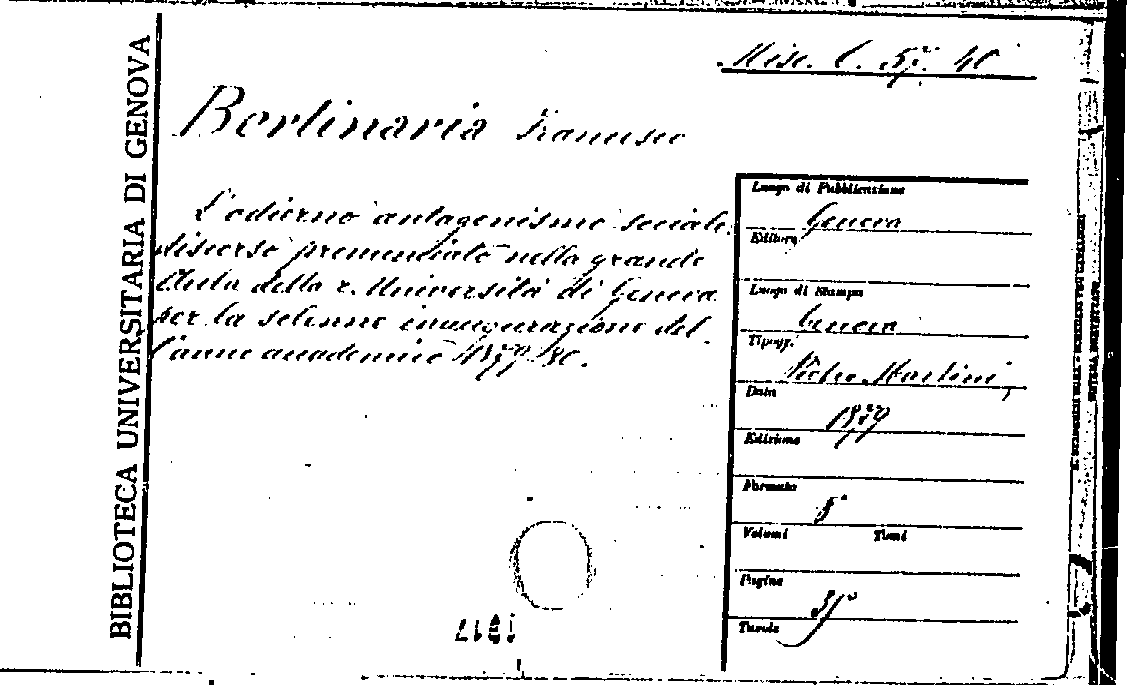 BIBLIOTECA UNIVERSITARIA DI GENOVA
Misc. C. 57. 40
Bertinaria Francesco
L'odierno antagonismo sociale.
discorso pronunciato nella grande
Aula della r. Università di Genova
per la solenne inaugurazione del
l'anno accademico 1879-80.
Luogo di Pubblicazione
Genova
Editore
Luogo di Stampa
Genova
Tipogr.
Pietro Martini
Data
1879
Edizione
Formato
8°
Volumi Tomi
Pagine
Tavole